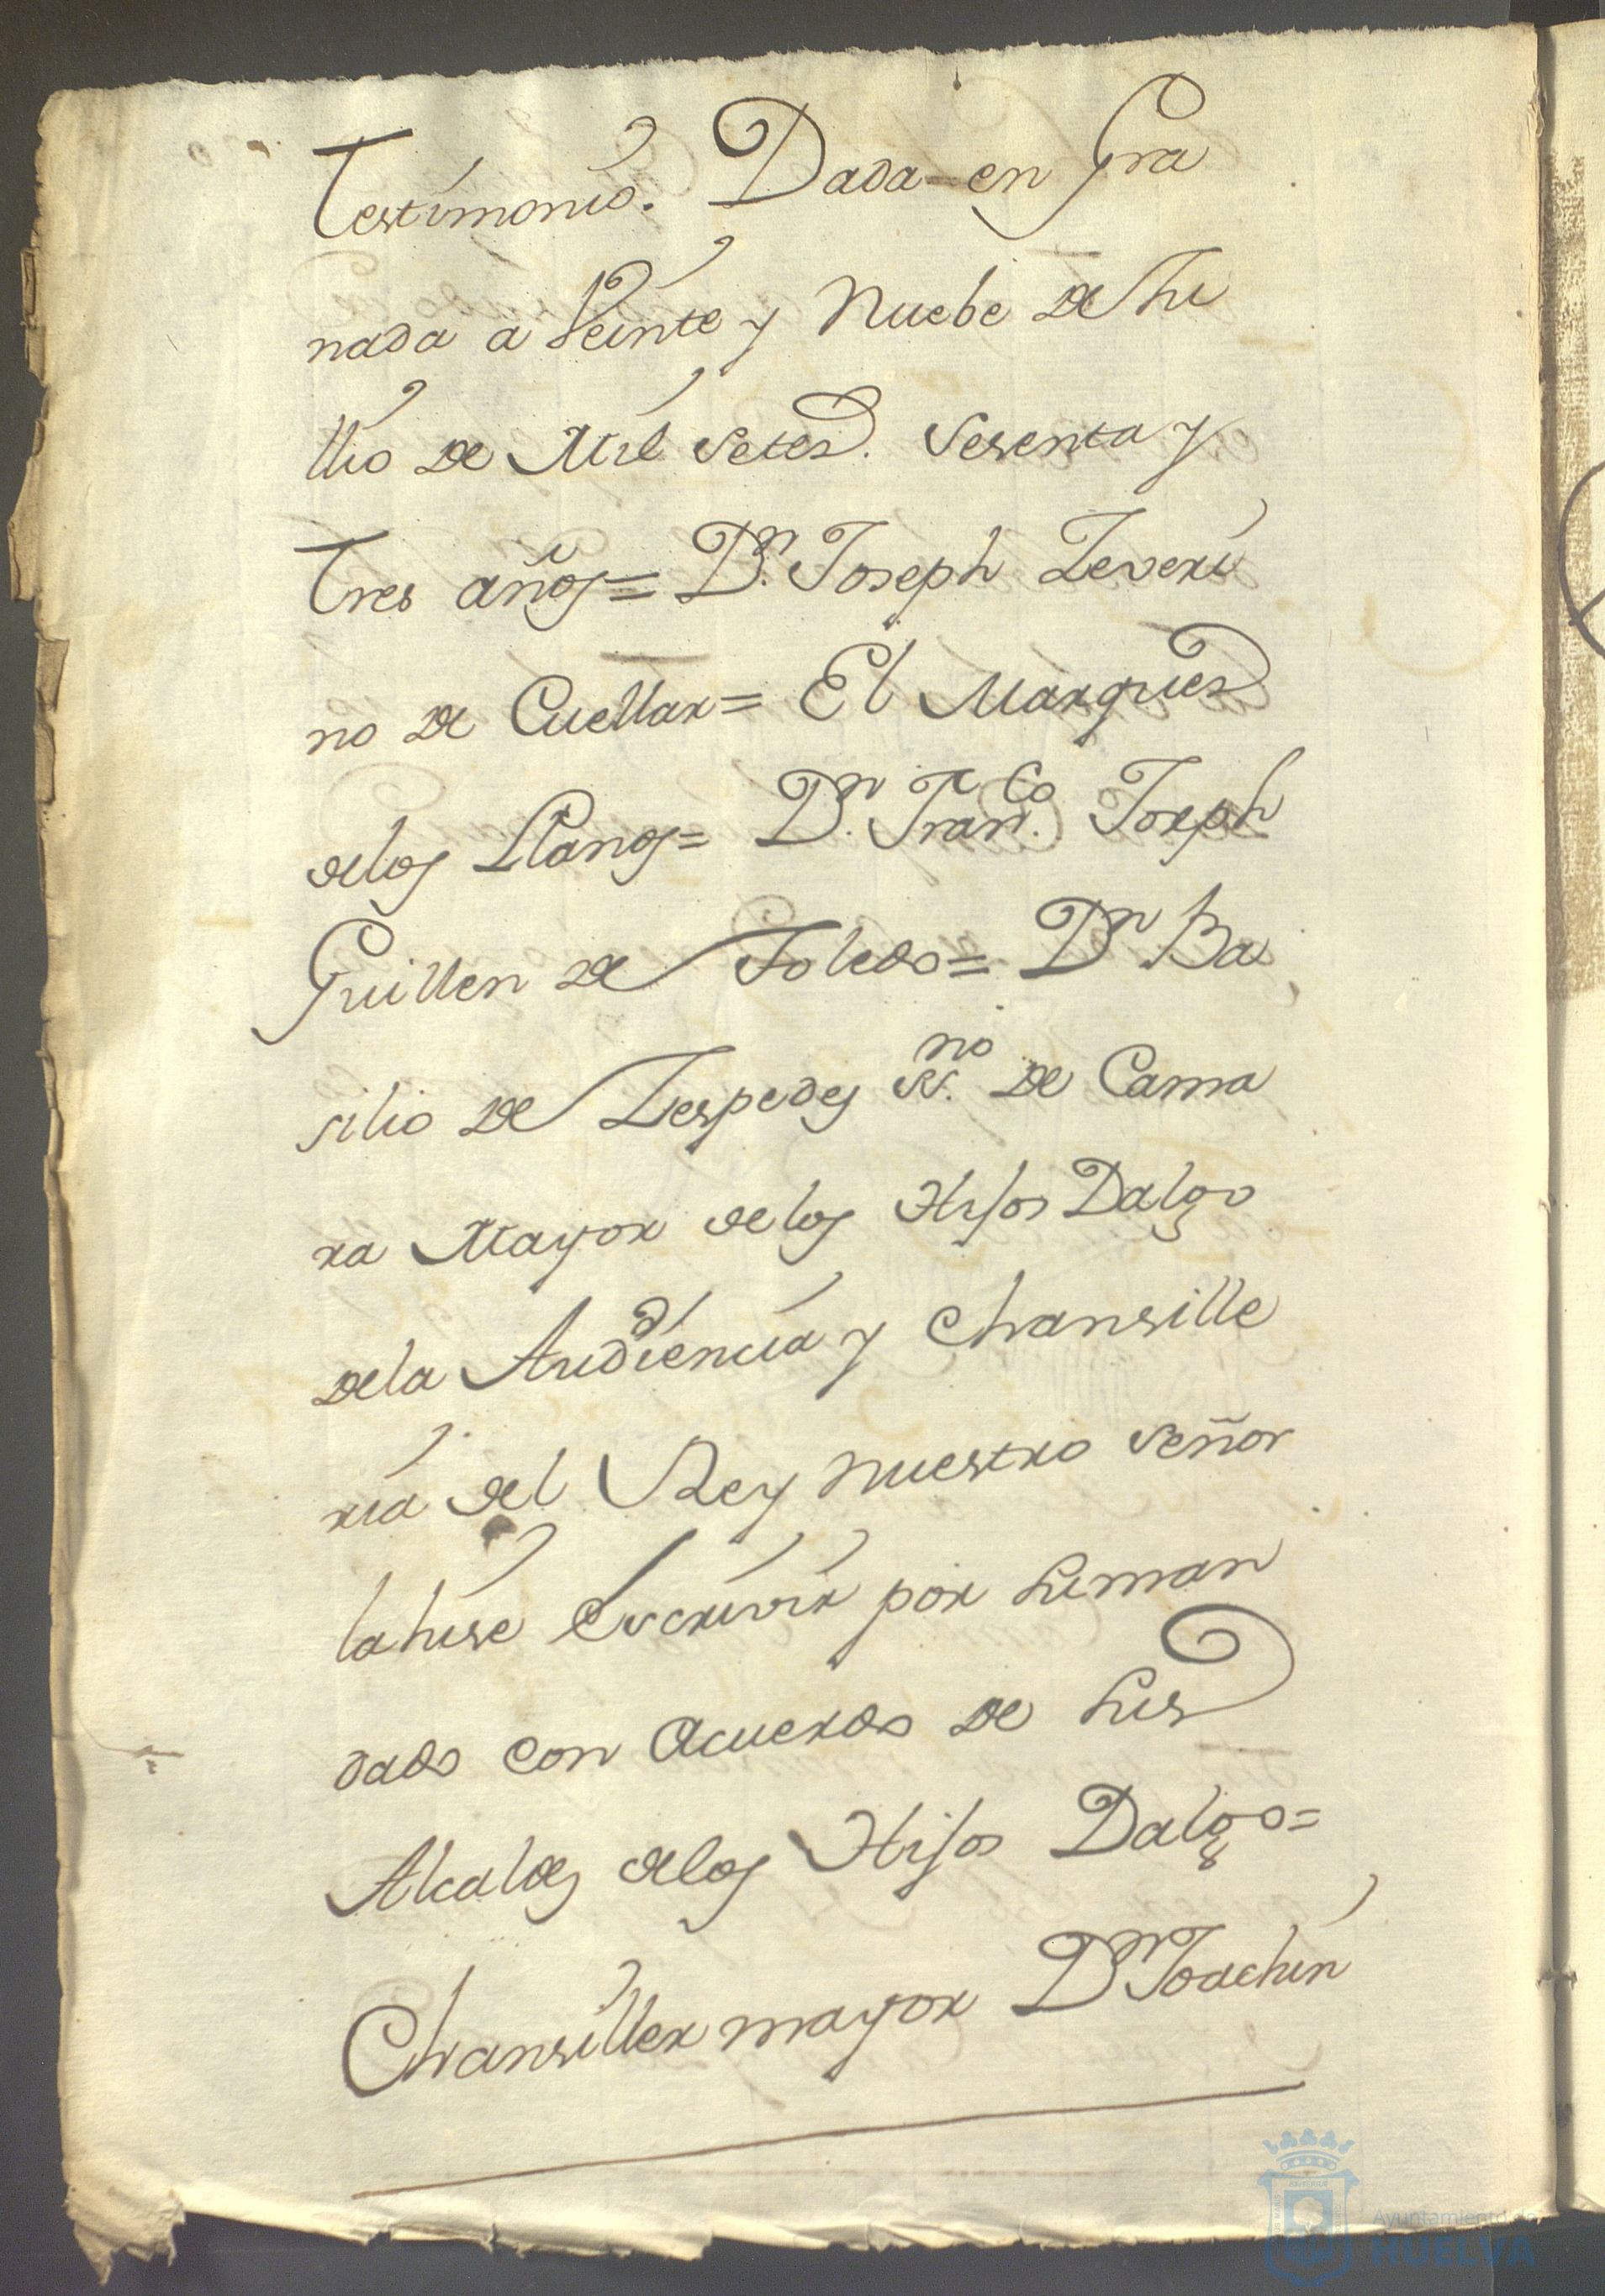 Testimonio. Dada en Gra
nada a Veinte y Nuebe de Hu
llio de Mil Setes. Sesenta y
tres años= Dn. Joseph Zeveri
no de Cuellar= El Marques
delos Llanos= Dn. Franco. Joseph
Guillen de Toledo= Dn Ba
silio de Zespedes SSno. de Cama
ra Mayor delos Hijos Dalgo
dela Audiencia y Chansille
ria del Rey nuestro Señor
lahise Escrivir por su man
dado con acuerdo de sus
Alcaldes delos Hijos Dalgo=
Chansiller mayor Dn Joachin
Ayuntamiento de
HUELVA